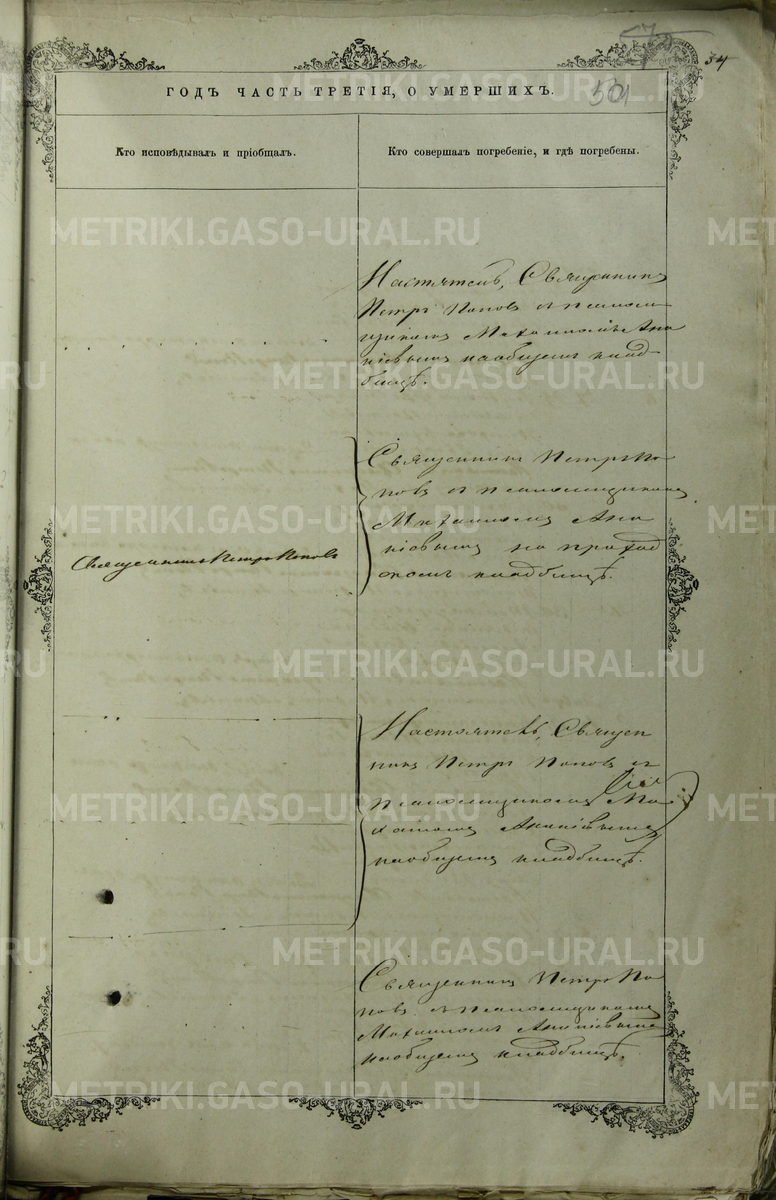 34
501
ГОДЪ ЧАСТЬ ТРЕТІЯ, О УМЕРШИХЪ.
Кто исповѣдывалъ и пріобщалъ.
Кто совершалъ погребеніе, и гдѣ погребены.
Настоятель, Священникъ
Петръ Поповъ съ псаломщ
щикомъ Михаиломъ Ана
ніевымъ на общемъ клад
бищѣ.
Священникъ Петръ По
повъ съ псаломщикомъ
Михаиломъ Ана
ніевымъ на приход
скомъ кладбищѣ.
Священникъ Петръ Поповъ
Настоятель, Священ
никъ Петръ Поповъ съ
псаломщикомъ Ми
хаиломъ Ананіевымъ
на общемъ кладбищѣ.
Священникъ Петръ По
повъ съ псаломщикомъ
Михаиломъ Ананіевымъ
на общемъ кладбищѣ.
METRIKI.GASO-URAL.RU